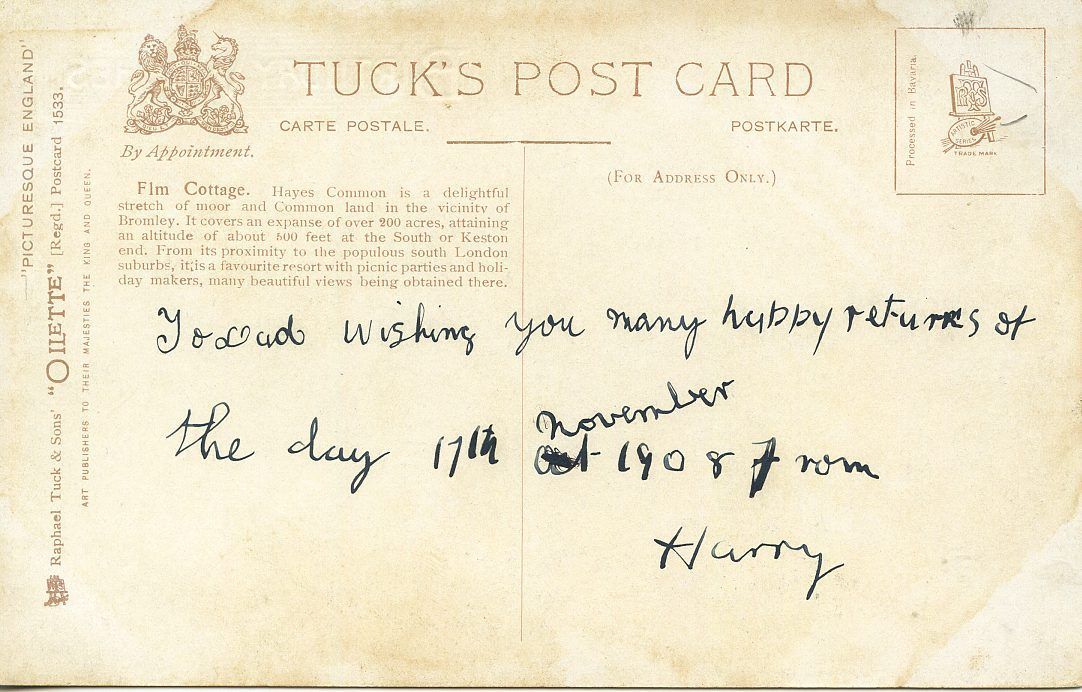 "PICTURESQUE ENGLAND"
Raphael Tuck & Sons' "OILETTE" [Regd.] Postcard 1533.
ART PUBLISHERS TO THEIR MAJESTIES THE KING AND QUEEN.
TUCK'S POST CARD
CARTE POSTALE.
POSTKARTE.
By Appointment.
(FOR ADDRESS ONLY.)
Processed in Bavaria.
ARTISTIC
SERIES
TRADE MARK
Flm Cottage. Hayes Common is a delightful
stretch of moor and Common land in the vicinity of
Bromley. It covers an expanse of over 200 acres, attaining
an altitude of about 500 feet at the South or Keston
end. From its proximity to the populous south London
suburbs, it is a favourite resort with picnic parties and holi-
day makers, many beautiful views being obtained there.
To Dad Wishing you many happy returns of
november
the day 17th 1908 From
Harry